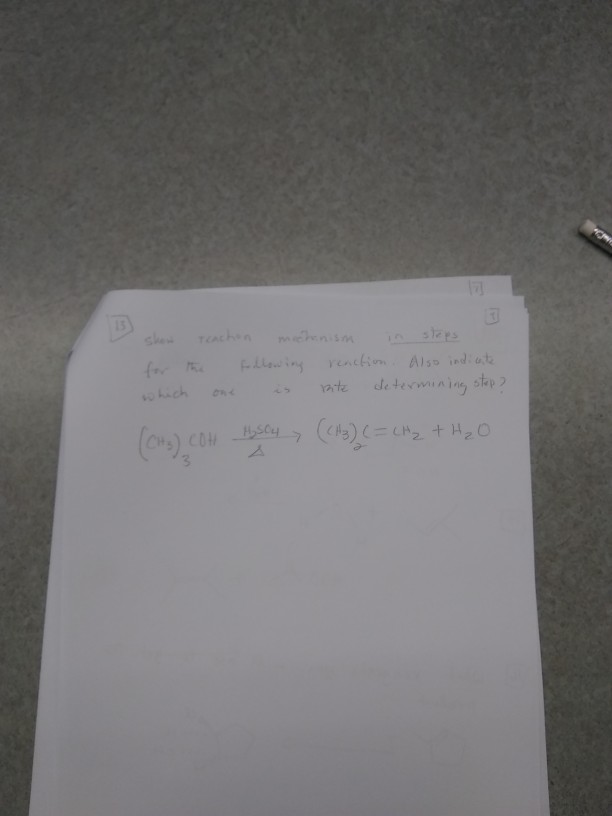 13
show reaction mechanism in steps
for the following reaction. Also indicate
which one is rate determining step?
(CH3)3 COH H2SO4 Δ → (CH3)2 C = CH2 + H2O